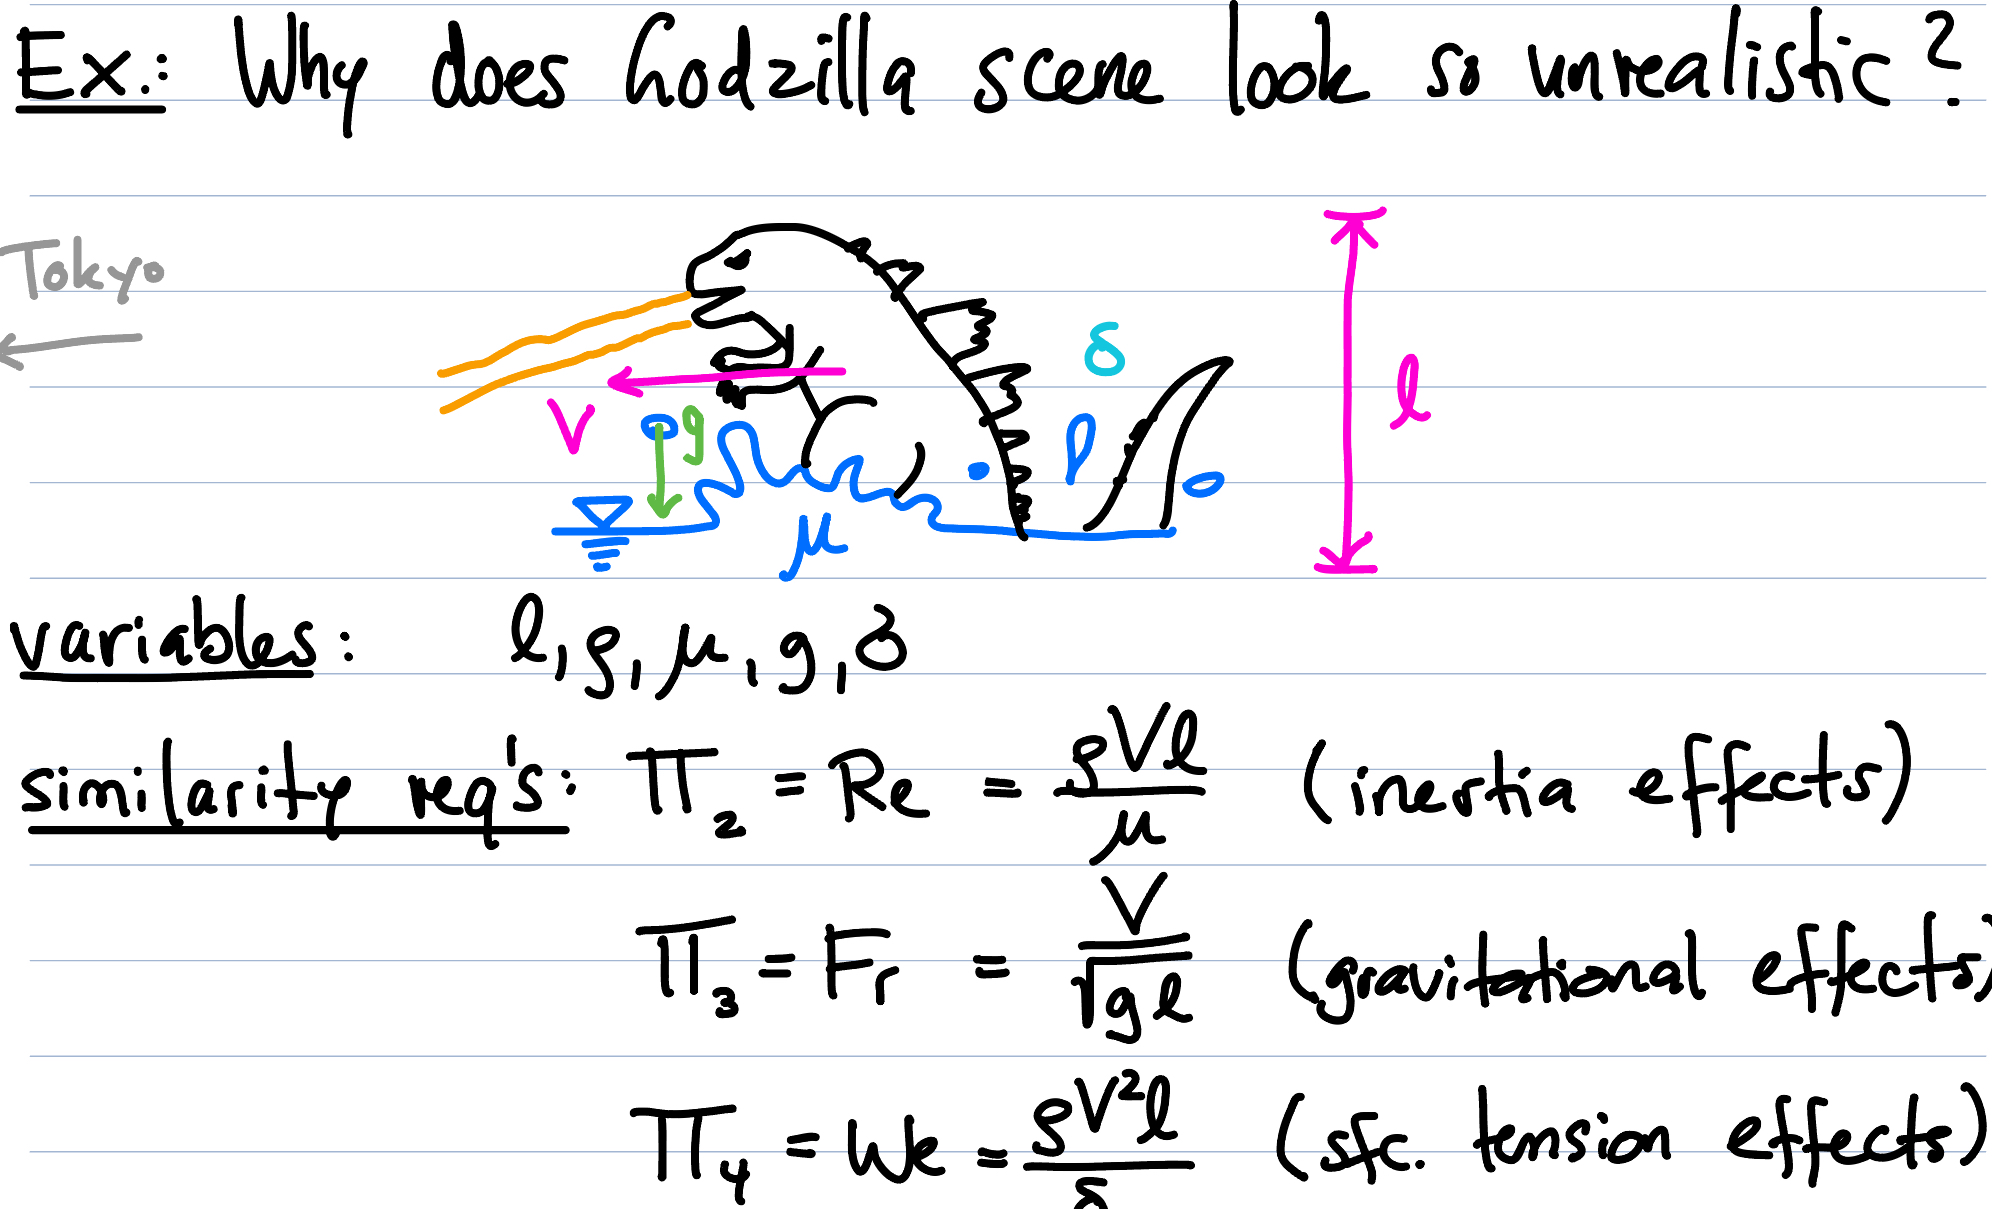 Ex.: Why does Godzilla scene look so unrealistic?
Tokyo
δ
l
V
g
ρ
μ
variables: l, ρ, μ, g, δ
similarity req's: Π₂ = Re = ρVl/μ (inertia effects)
Π₃ = Fr = V/√gl (gravitational effects)
Π₄ = We = ρV²l/δ (sfc. tension effects)